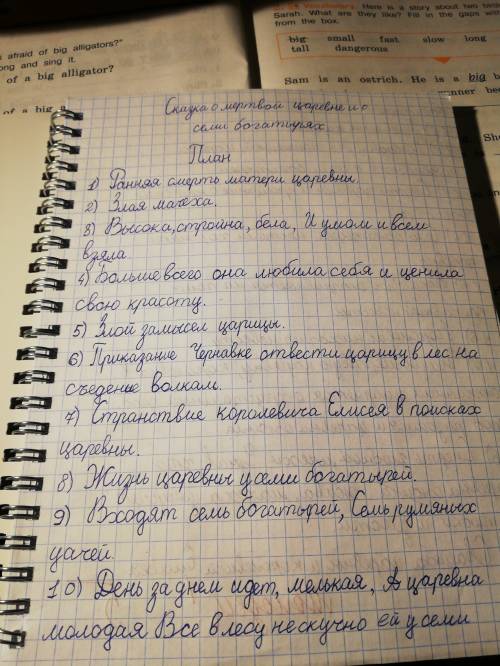 s afraid of big alligators?"
ong and sing it.
of a big alligator?
of a big
Vocabulary. Here is a story about two
Sarah. What are they like? Fill in the gaps
from the box.
big small fast slow long
tall dangerous
Sam is an ostrich. He is a big
Сказка о мертвой царевне и о
семи богатырях
План
1) Ранняя смерть матери царевны.
2) Злая мачеха.
3) Высока, стройна, бела, И умом и всем
взяла.
4) Больше всего она любила себя и ценила
свою красоту.
5) Злой замысел царицы.
6) Приказание Чернавке отвести царицу в лес на
съедение волкам.
7) Странствие королевича Елисея в поисках
царевны.
8) Жизнь царевны у семи богатырей.
9) Входят семь богатырей, Семь румяных
усачей.
10) День за днем идет, мелькая, А царевна
молодая Все в лесу не скучно ей у семи